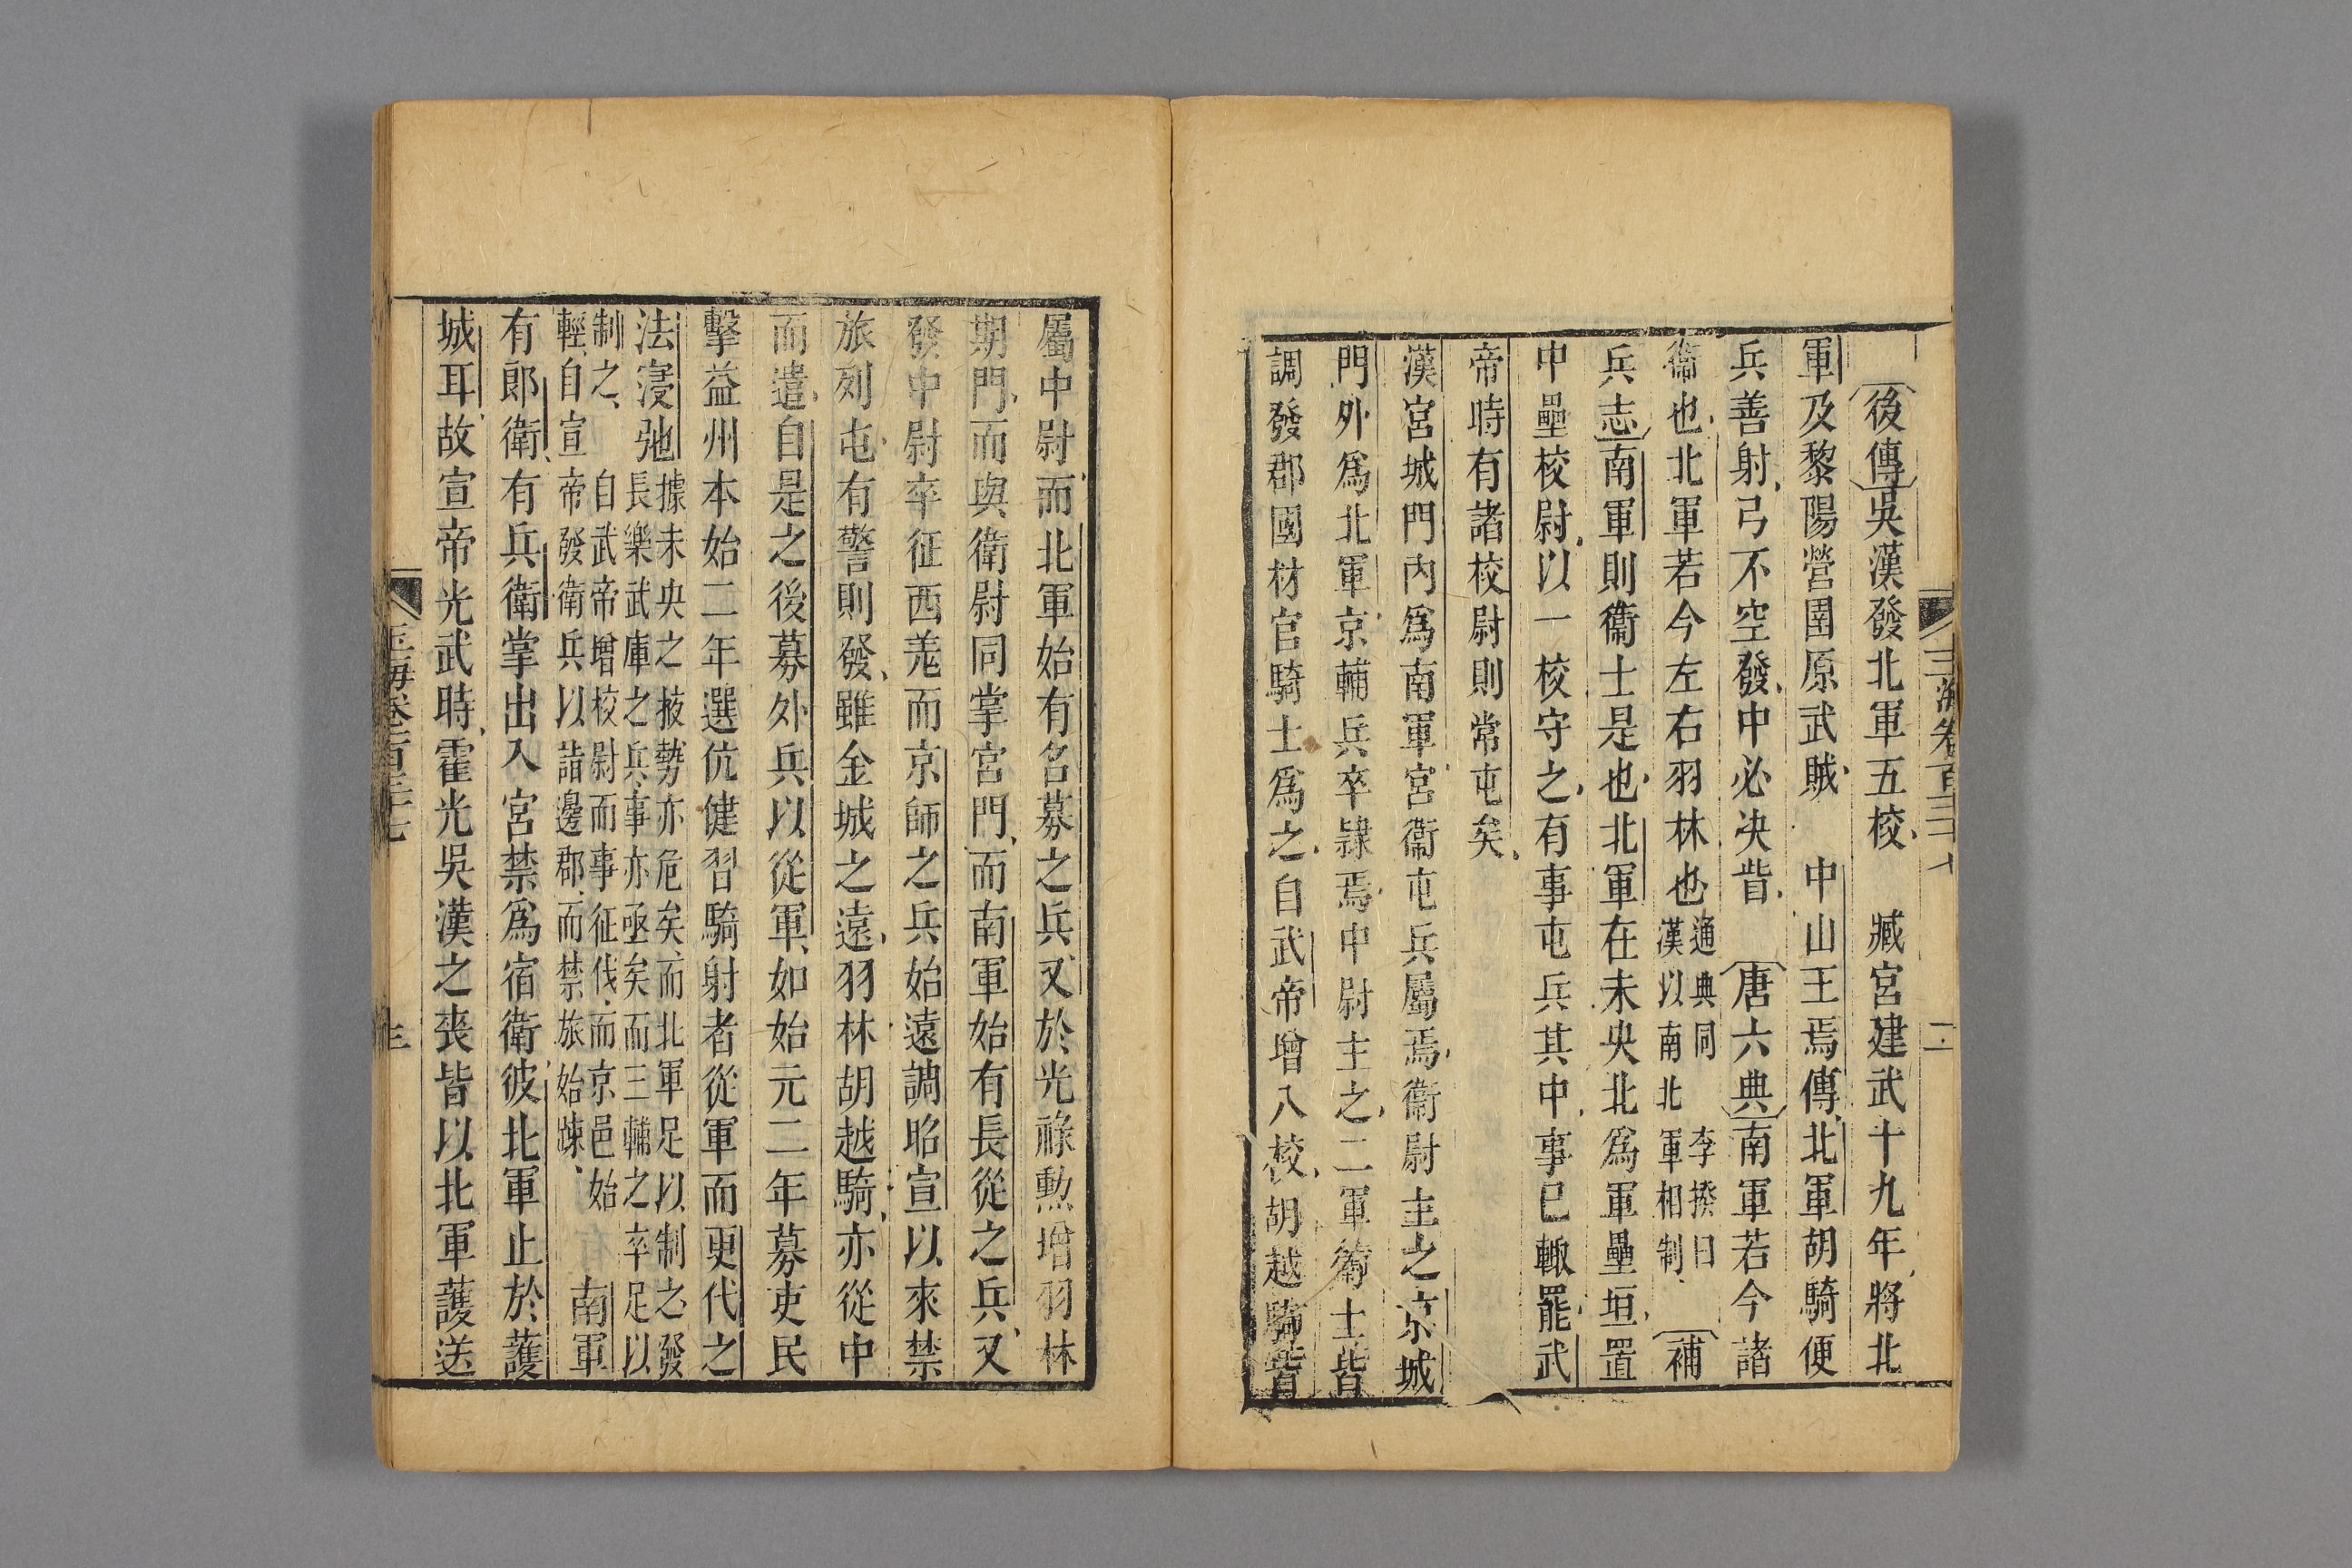 後傳吳漢發北軍五校　臧宮建武十九年將北
軍及黎陽營圍原武賊　中山王焉傳北軍胡騎便
兵善射弓不空發中必决眥　唐六典南軍若今諸
衞也北軍若今左右羽林也通典同　李揆曰
漢以南北軍相制　補
兵志南軍則衞士是也北軍在未央北爲軍壘垣置
中壘校尉以一校守之有事屯兵其中事已輙罷武
帝時有諸校尉則常屯矣
漢宮城門內爲南軍宮衞屯兵屬焉衞尉主之京城
門外爲北軍京輔兵卒隷焉中尉主之二軍衞士皆
調發郡國材官騎士爲之自武帝增八校胡越騎皆
屬中尉而北軍始有名募之兵又於光祿勲增羽林
期門而與衛尉同掌宮門而南軍始有長從之兵又
發中尉卒征西羗而京師之兵始遠調昭宣以來禁
旅列屯有警則發雖金城之遠羽林胡越騎亦從中
而遣自是之後募外兵以從軍如始元二年募吏民
擊益州本始二年選伉健習騎射者從軍而更代之
法寖弛據未央之掖勢亦危矣而北軍足以制之發
長樂武庫之兵事亦亟矣而三輔之卒足以
制之　自武帝增校尉而事征伐而京邑始
輕自宣帝發衛兵以詣邊郡而禁旅始踈　南軍
有郎衛有兵衛掌出入宮禁爲宿衛彼北軍止於護
城耳故宣帝光武時霍光吳漢之喪皆以北軍護送
玉海卷百三十七